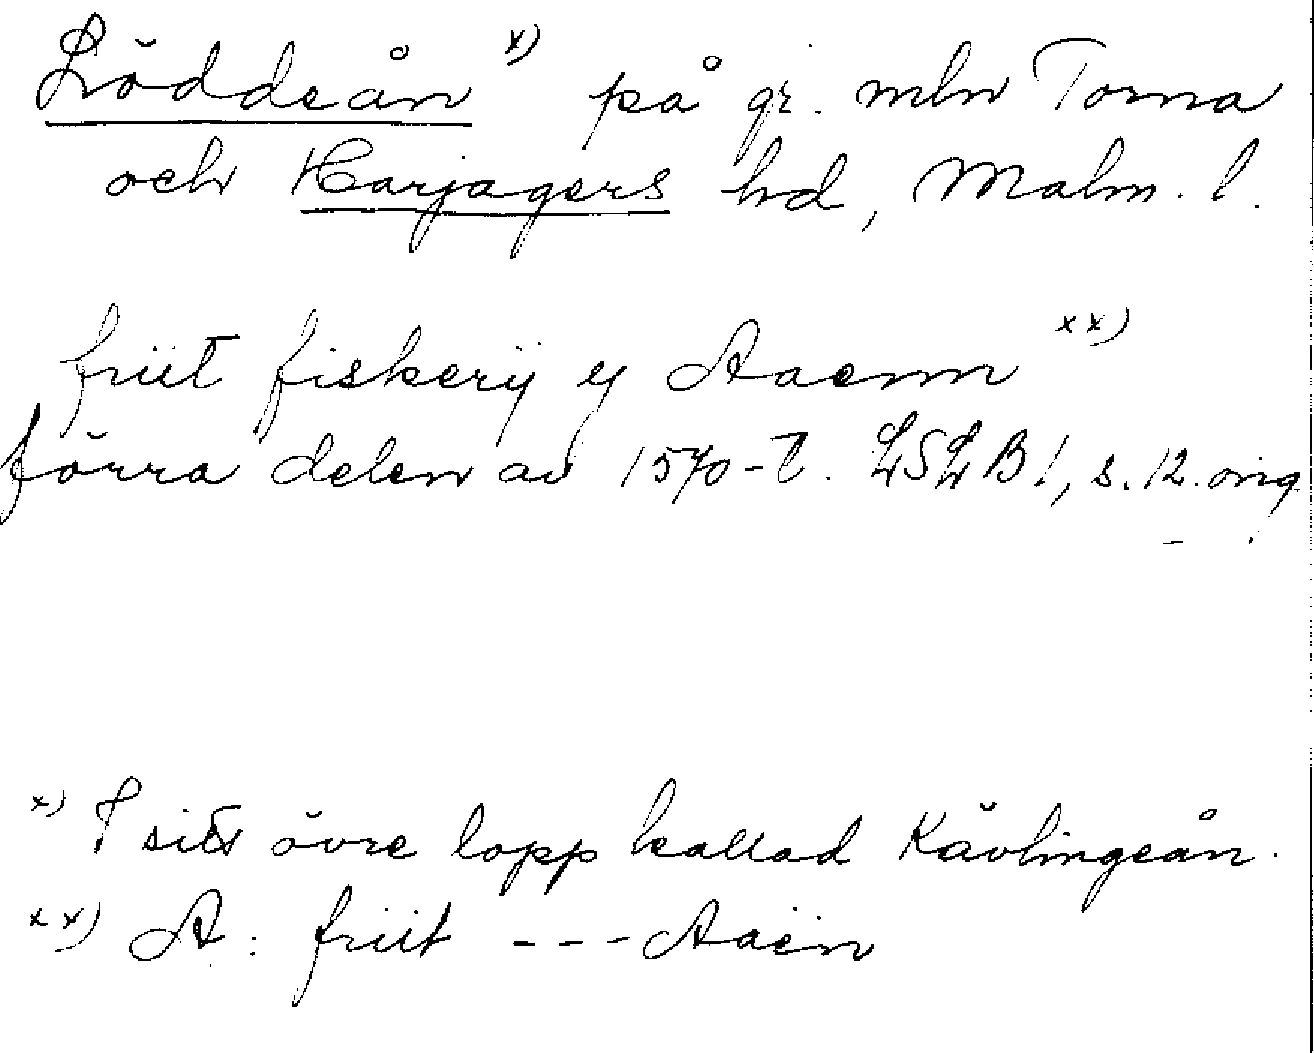 Löddeån x) på gr. mln Torna
och Harjagers hd, Malm. l.
friit fiskerij y Aaenn xx)
förra delen av 1570-t. LSLB 1, s. 12. orig
x) I sitt övre lopp kallad Kävlingeån.
xx) A: friit --- Aaen